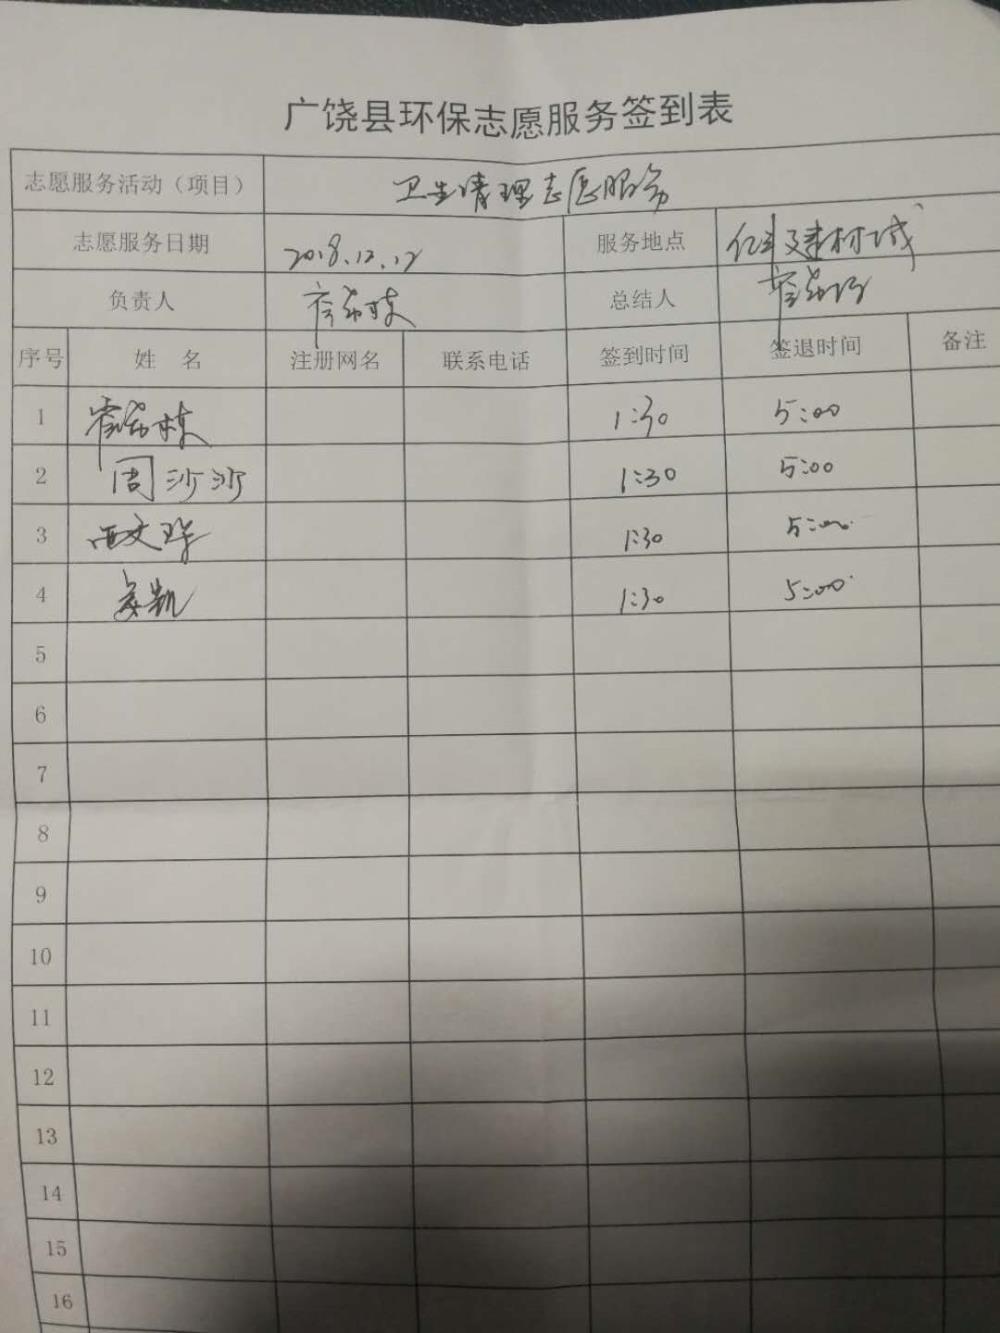 广饶县环保志愿服务签到表
志愿服务活动（项目） 卫生清理志愿服务
志愿服务日期 2018.12.12 服务地点 亿丰建材城
负责人 总结人
序号 姓 名 注册网名 联系电话 签到时间 签退时间 备注
1 1:30 5:00
2 周沙沙 1:30 5:00
3 1:30 5:00
4 1:30 5:00
5
6
7
8
9
10
11
12
13
14
15
16